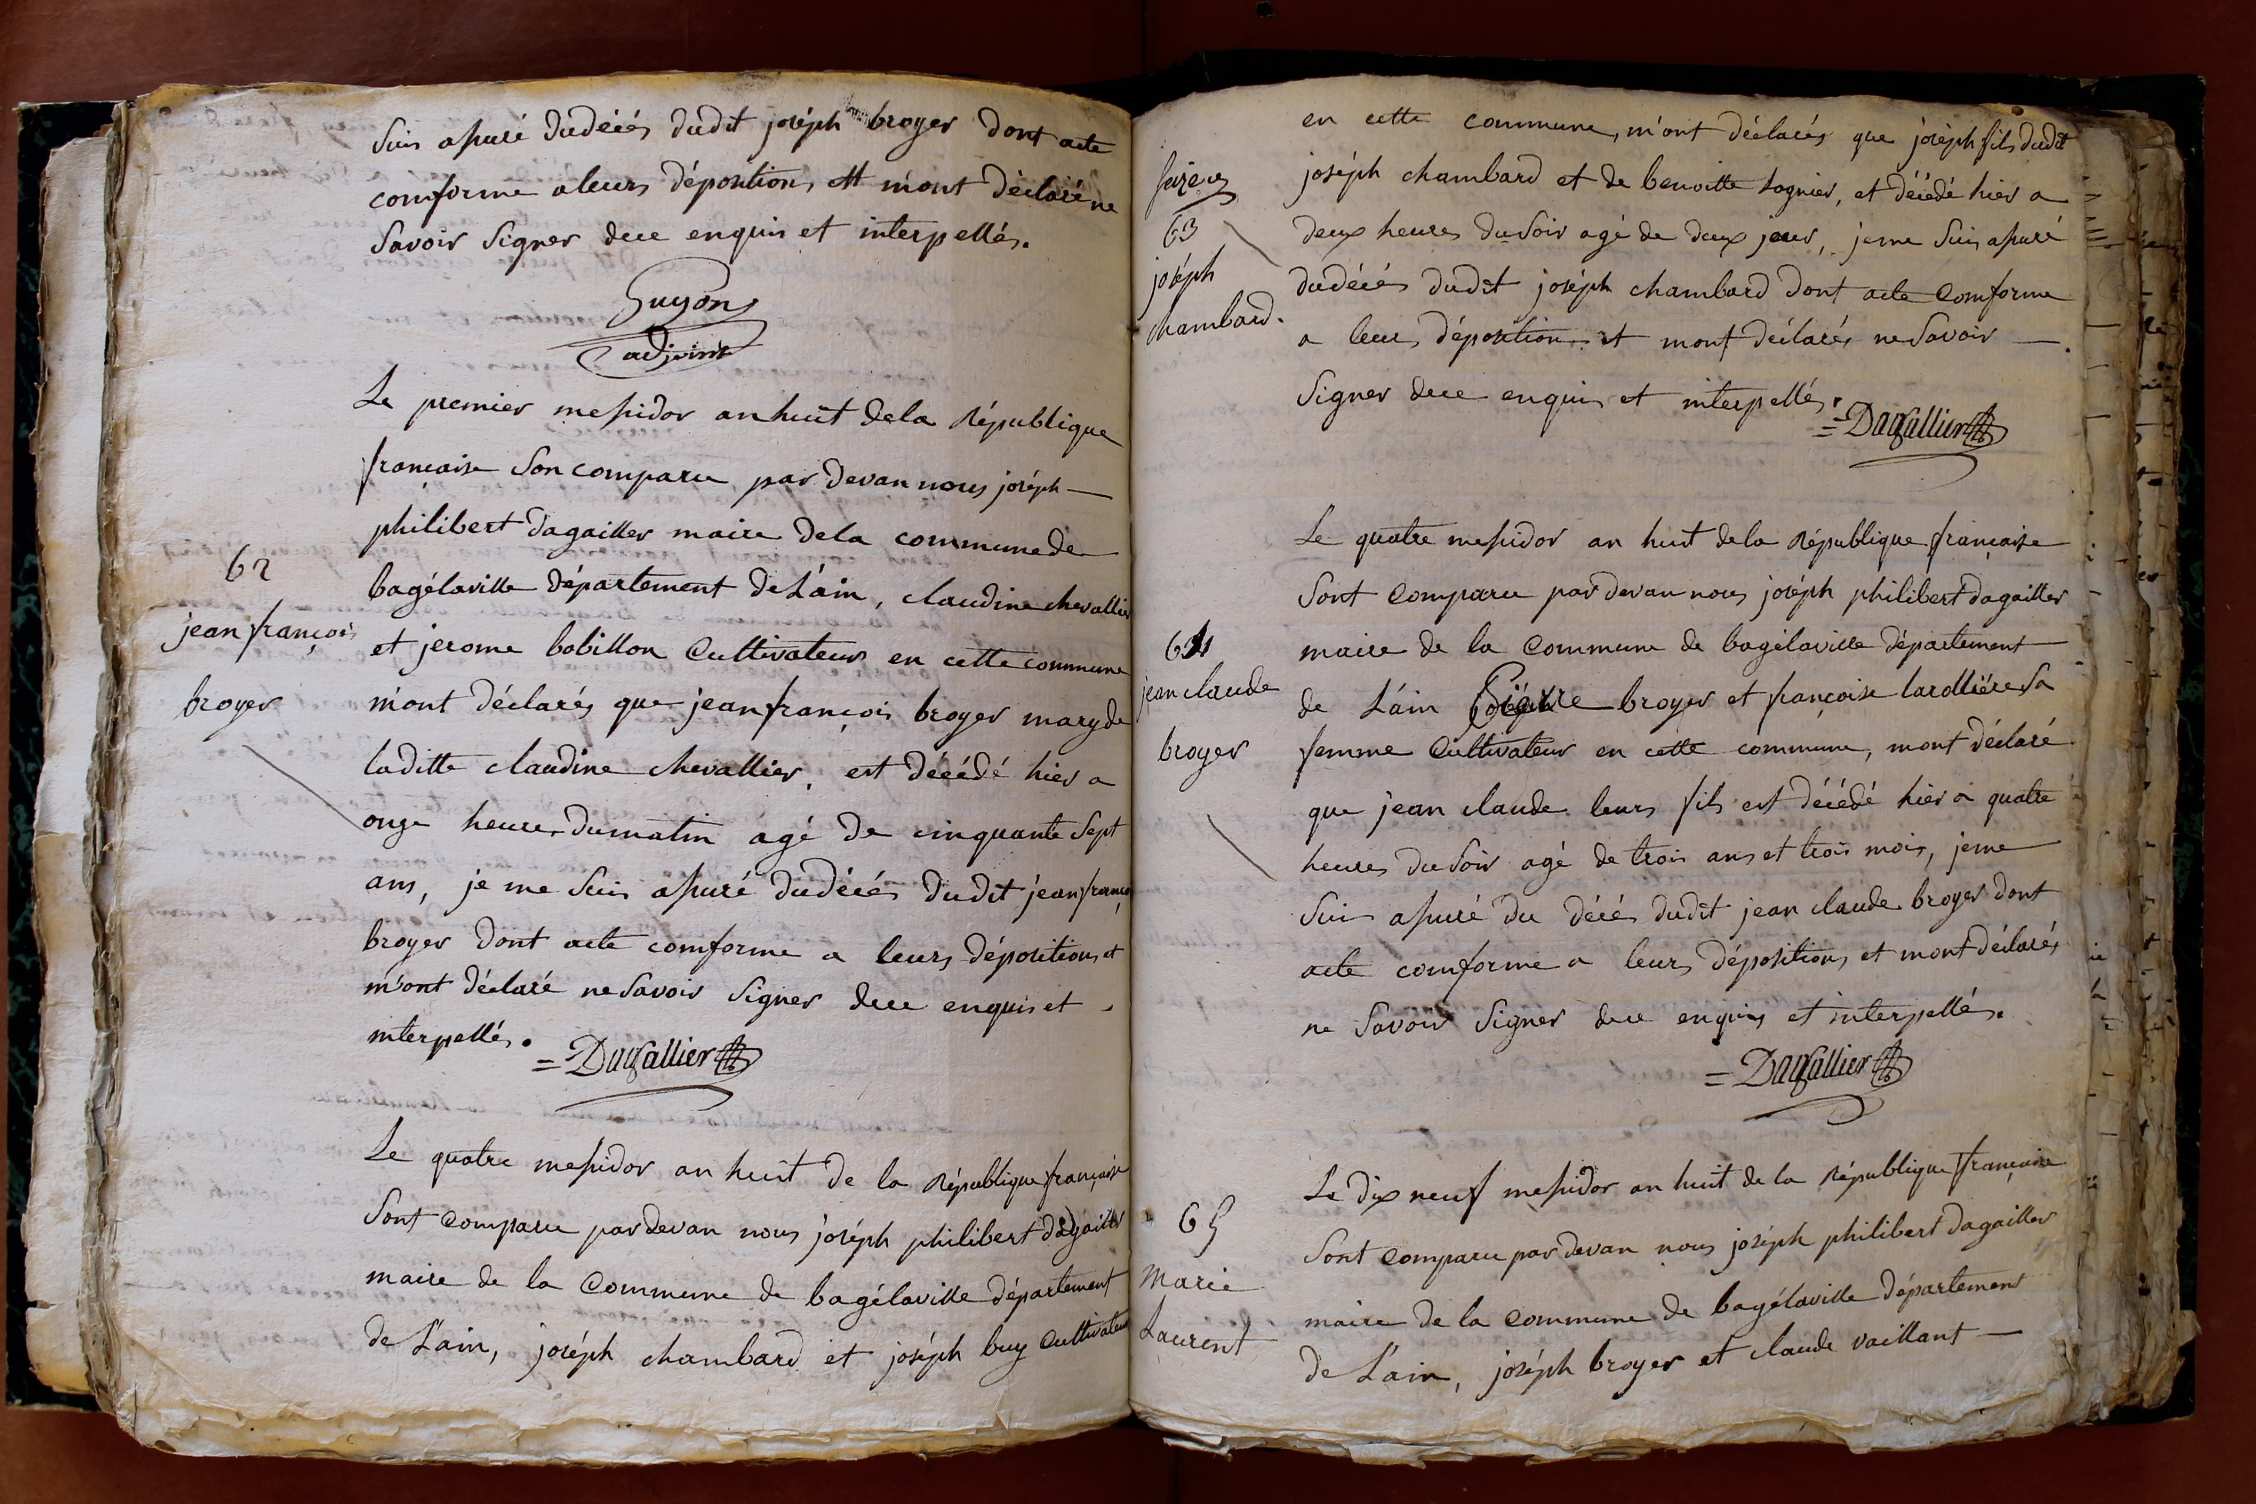 Suis assuré dudécés dudit joséph broyer dont acte
comforme a leurs dépositions et m'ont déclaré ne
Savoir Signer dece enquis et interpellés.
Guyon
adjoint
Le premier messidor an huit dela République
française Son comparu par devan nous joséph
philibert dagailler maire dela commune de
bagélaville département de L'ain, claudine chevallier
62
jean françois
broyer
et jerome bobillon Cultivateurs en cette commune
m'ont déclarés que jean françois broyer mary de
laditte claudine chevallier, est décédé hier a
onze heures dumatin agé de cinquante Sept
ans, je me Suis assuré dudécés dudit jean françois
broyer dont acte comforme a leurs dépositions et
m'ont déclaré ne Savoir Signer dece enquis et
interpellés.
= Dagallier
Le quatre messidor an huit de la République française
Sont comparu pardevan nous joséph philibert dagailler
maire de la Commune de bagélaville département
de L'ain, joséph chambard et joséph buy Cultivateurs
en cette commune, m'ont déclarés que joséph fils dudit
63
joséph
chambard.
joséph chambard et de benoitte Lognier, et décédé hier a
deux heures duSoir agé de deux jours, jeme Suis assuré
dudécés dudit joséph chambard dont acte Comforme
a leurs dépositions et mont déclarés ne Savoir
Signer dece enquis et interpellés.
= Dagallier
Le quatre messidor an huit dela République française
Sont Comparu par devan nous joséph philibert dagailler
64
jean claude
broyer
maire de la Commune de bagélaville département
de L'ain broyer et françoise larolliére Sa
femme Cultivateur en cette commune, mont déclaré
que jean claude leurs fils est décédé hier a quatre
heures duSoir agé de trois ans et trois mois, jeme
Suis assuré du décés dudit jean claude broyer dont
acte comforme a leurs dépositions et mont déclarés
ne Savoir Signer dece enquis et interpellés.
= Dagallier
65
Marie
Laurent
Le dix neuf messidor an huit de la République française
Sont comparu par devan nous joséph philibert dagailler
maire de la commune de bagélaville département
de L'ain, joséph broyer et claude vaillant